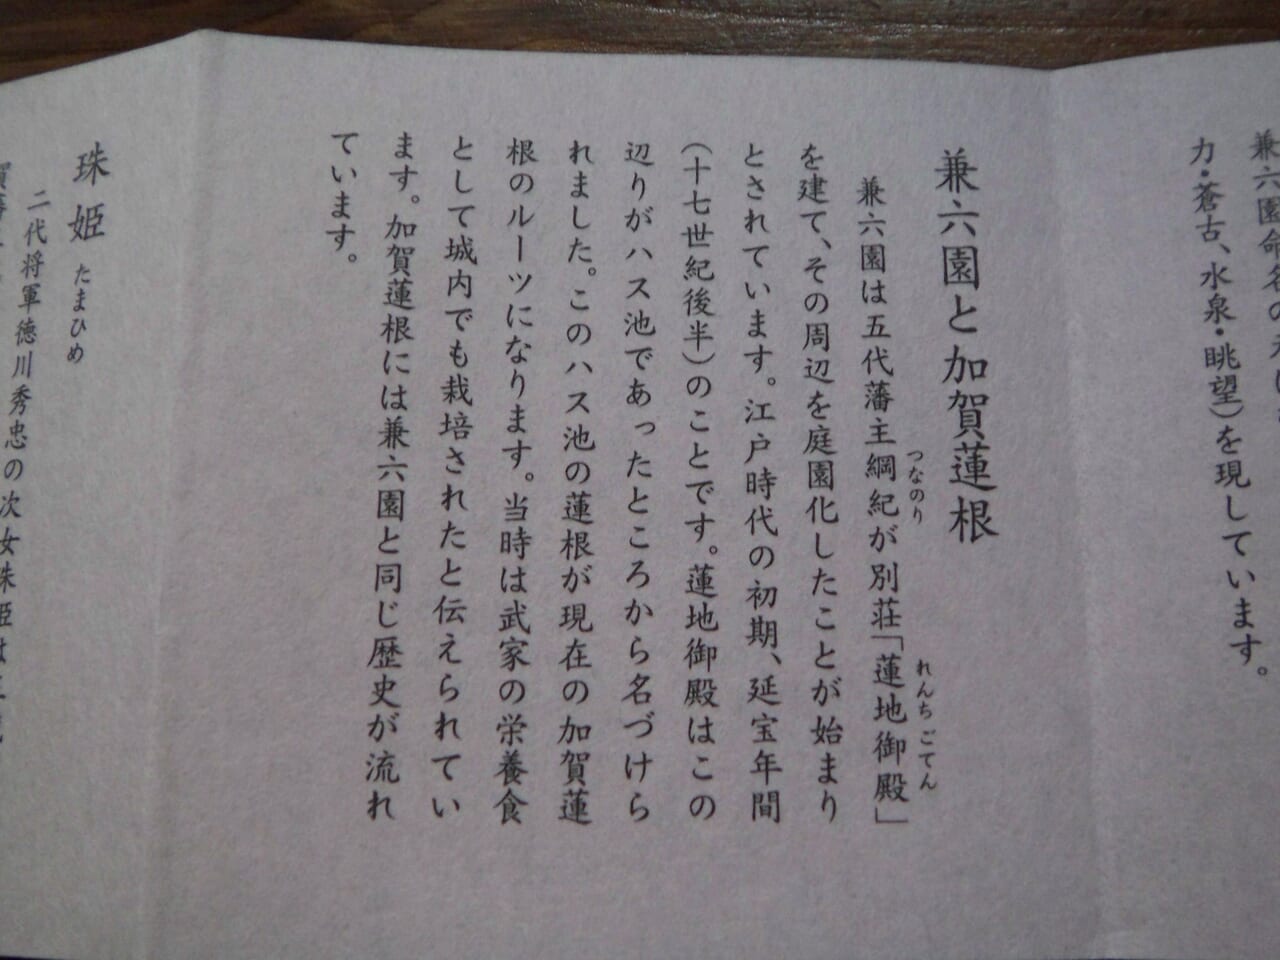 兼六園命名の
力・蒼古、水泉・眺望)を現しています。
兼六園と加賀蓮根
兼六園は五代藩主綱紀が別荘「蓮地御殿」
つなのり
れんちごてん
を建て、その周辺を庭園化したことが始まり
とされています。江戸時代の初期、延宝年間
(十七世紀後半)のことです。蓮地御殿はこの
辺りがハス池であったところから名づけら
れました。このハス池の蓮根が現在の加賀蓮
根のルーツになります。当時は武家の栄養食
として城内でも栽培されたと伝えられてい
ます。加賀蓮根には兼六園と同じ歴史が流れ
ています。
珠姫 たまひめ
二代将軍徳川秀忠の次女珠姫は